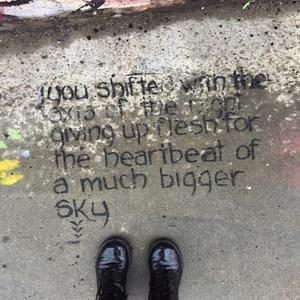 you shifted with the
axis of the night
giving up flesh for
the heartbeat of
a much bigger
sky